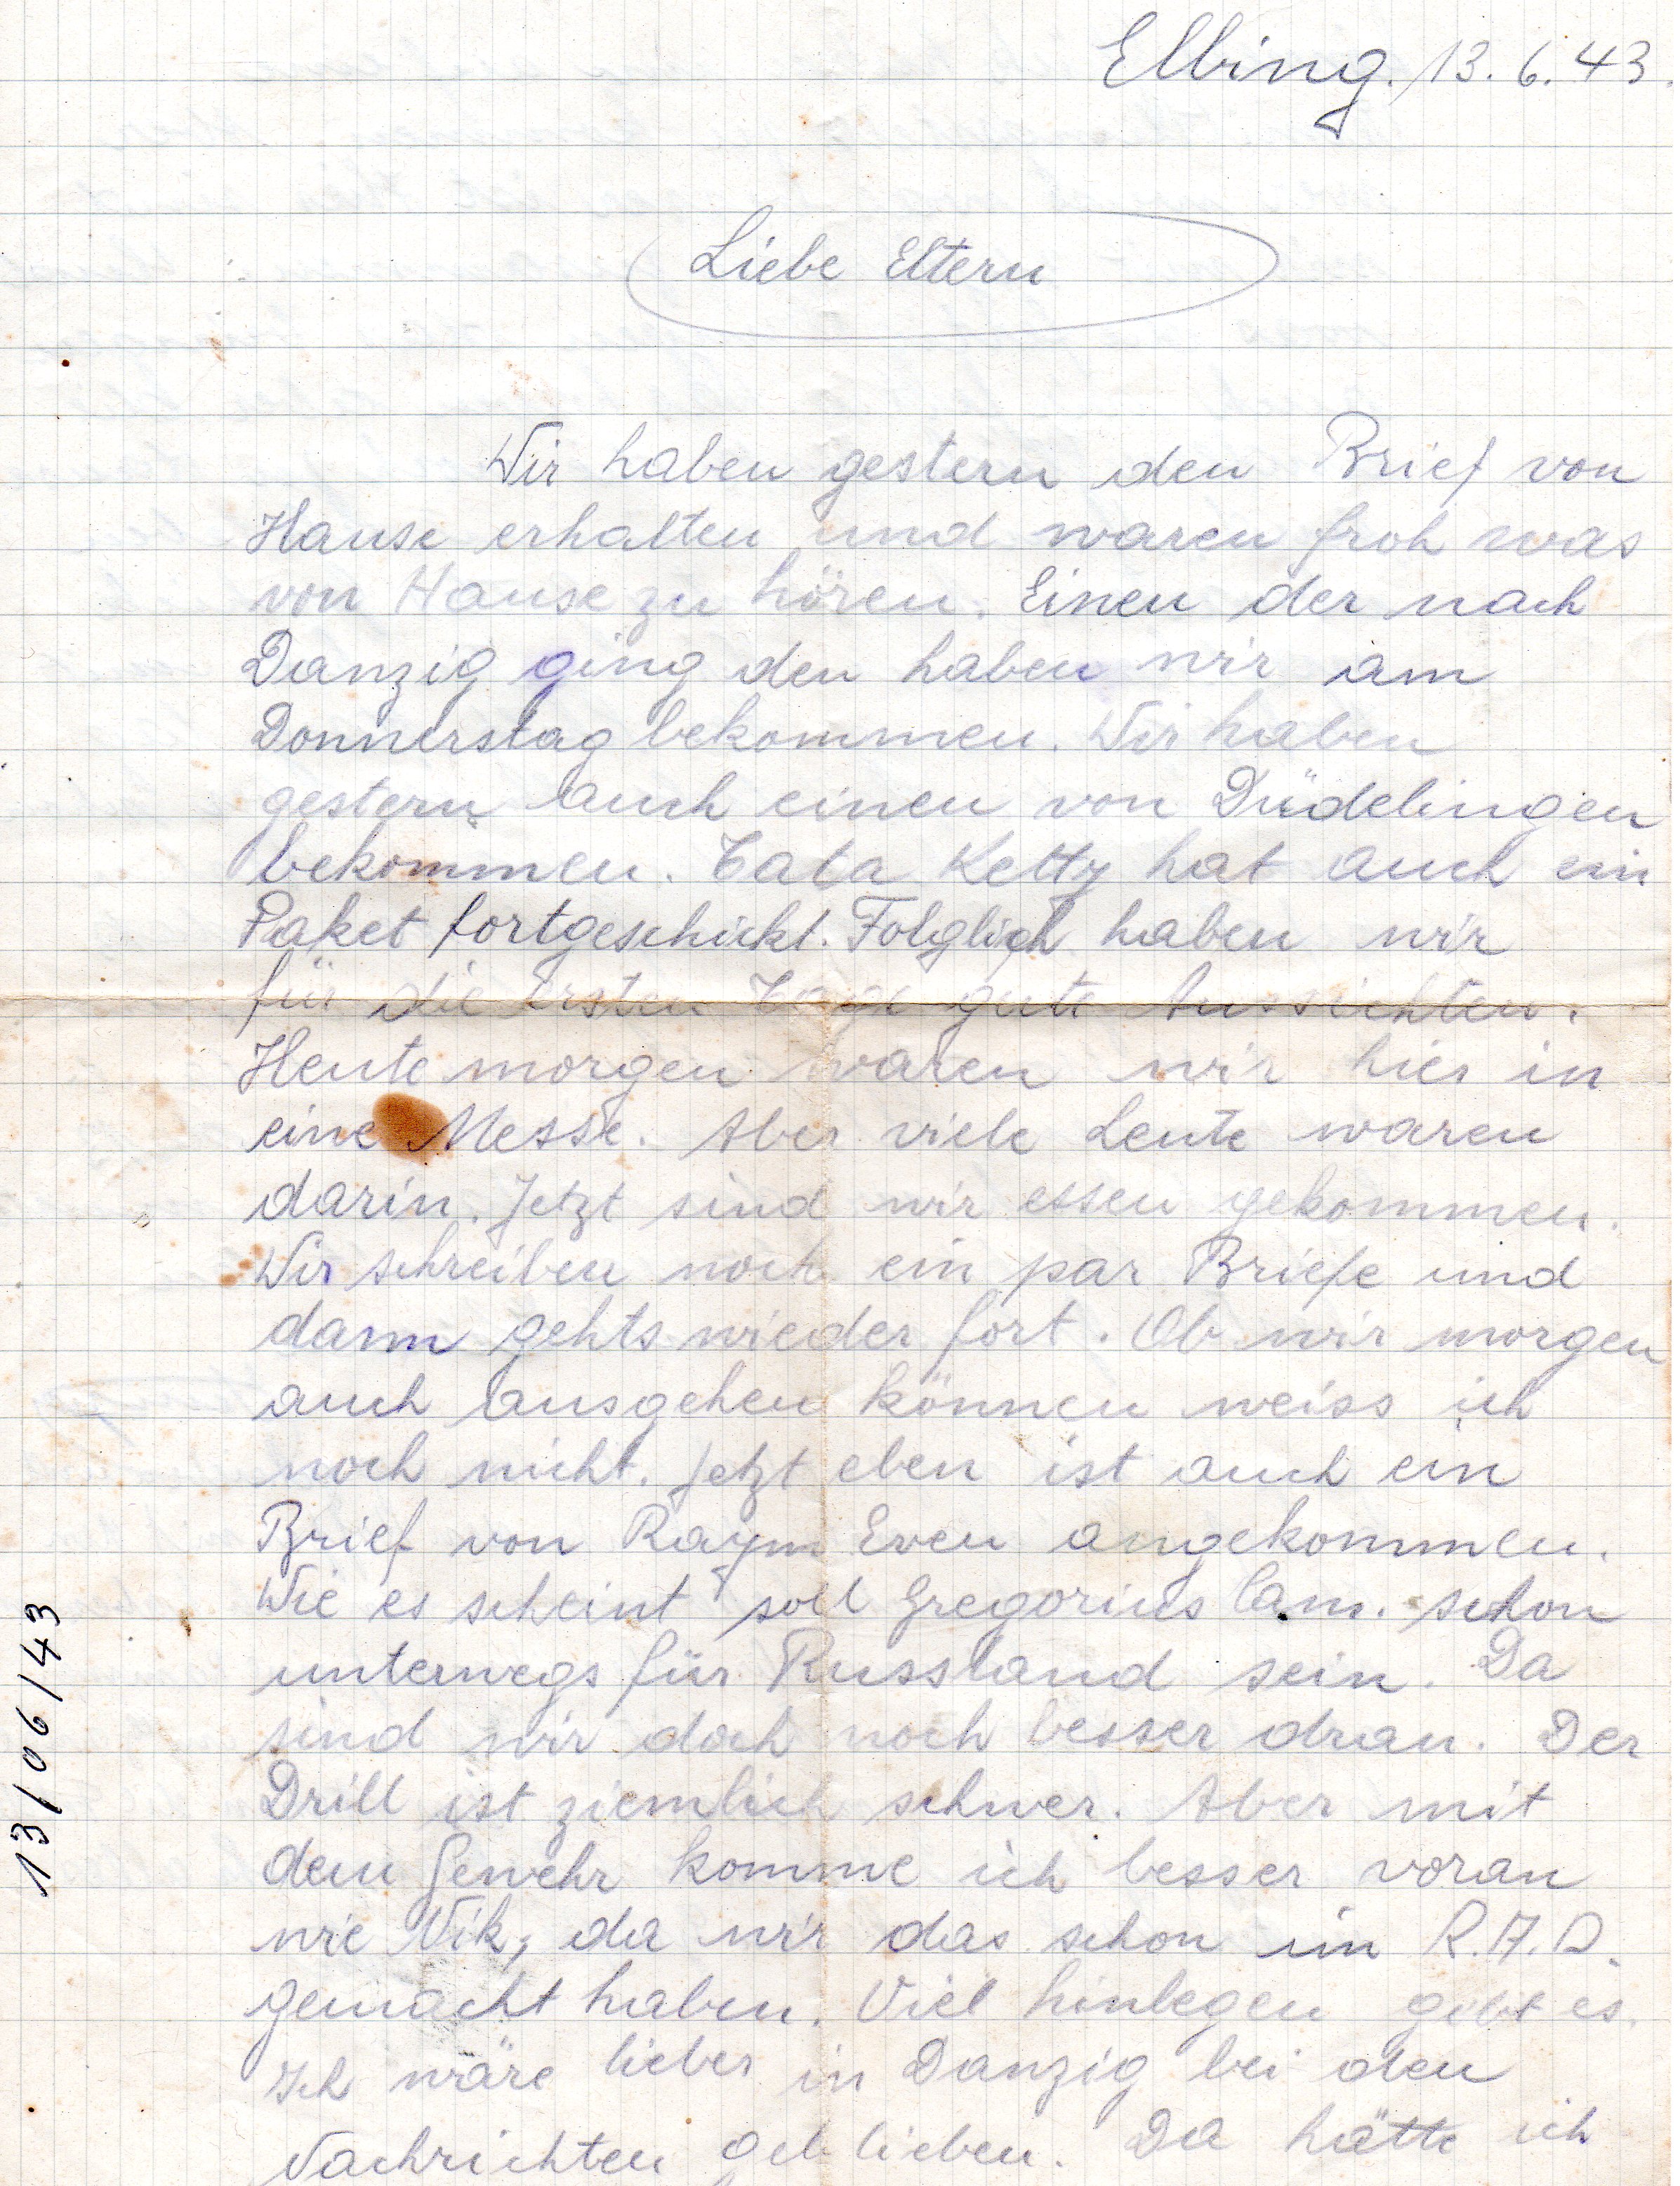 Elbing. 13. 6. 43.
Liebe Eltern
Wir haben gestern den Brief von
Hause erhalten und waren froh was
von Hause zu hören. Einen der nach
Danzig ging den haben wir am
Donnerstag bekommen. Wir haben
gestern auch einen von Düdelingen
bekommen. Tata Ketty hat auch ein
Paket fortgeschickt. Folglich haben wir
für die ersten Tage gute Aussichten.
Heute morgen waren wir hier in
eine Messe. Aber viele Leute waren
darin. Jetzt sind wir essen gekommen.
Wir schreiben noch ein par Briefe und
dann gehts wieder fort. Ob wir morgen
auch ausgehen können weiss ich
noch nicht. Jetzt eben ist auch ein
Brief von Raym Even angekommen.
Wie es scheint soll Gregorius Cam. schon
unterwegs für Russland sein. Da
sind wir doch noch besser dran. Der
Drill ist ziemlich schwer. Aber mit
dem Gewehr komme ich besser voran
wie Nik, da wir das schon im R.A.D.
gemacht haben. Viel hinlegen gibt es.
Ich wäre lieber in Danzig bei den
Nachrichten geblieben. Da hätte ich
13/06/43